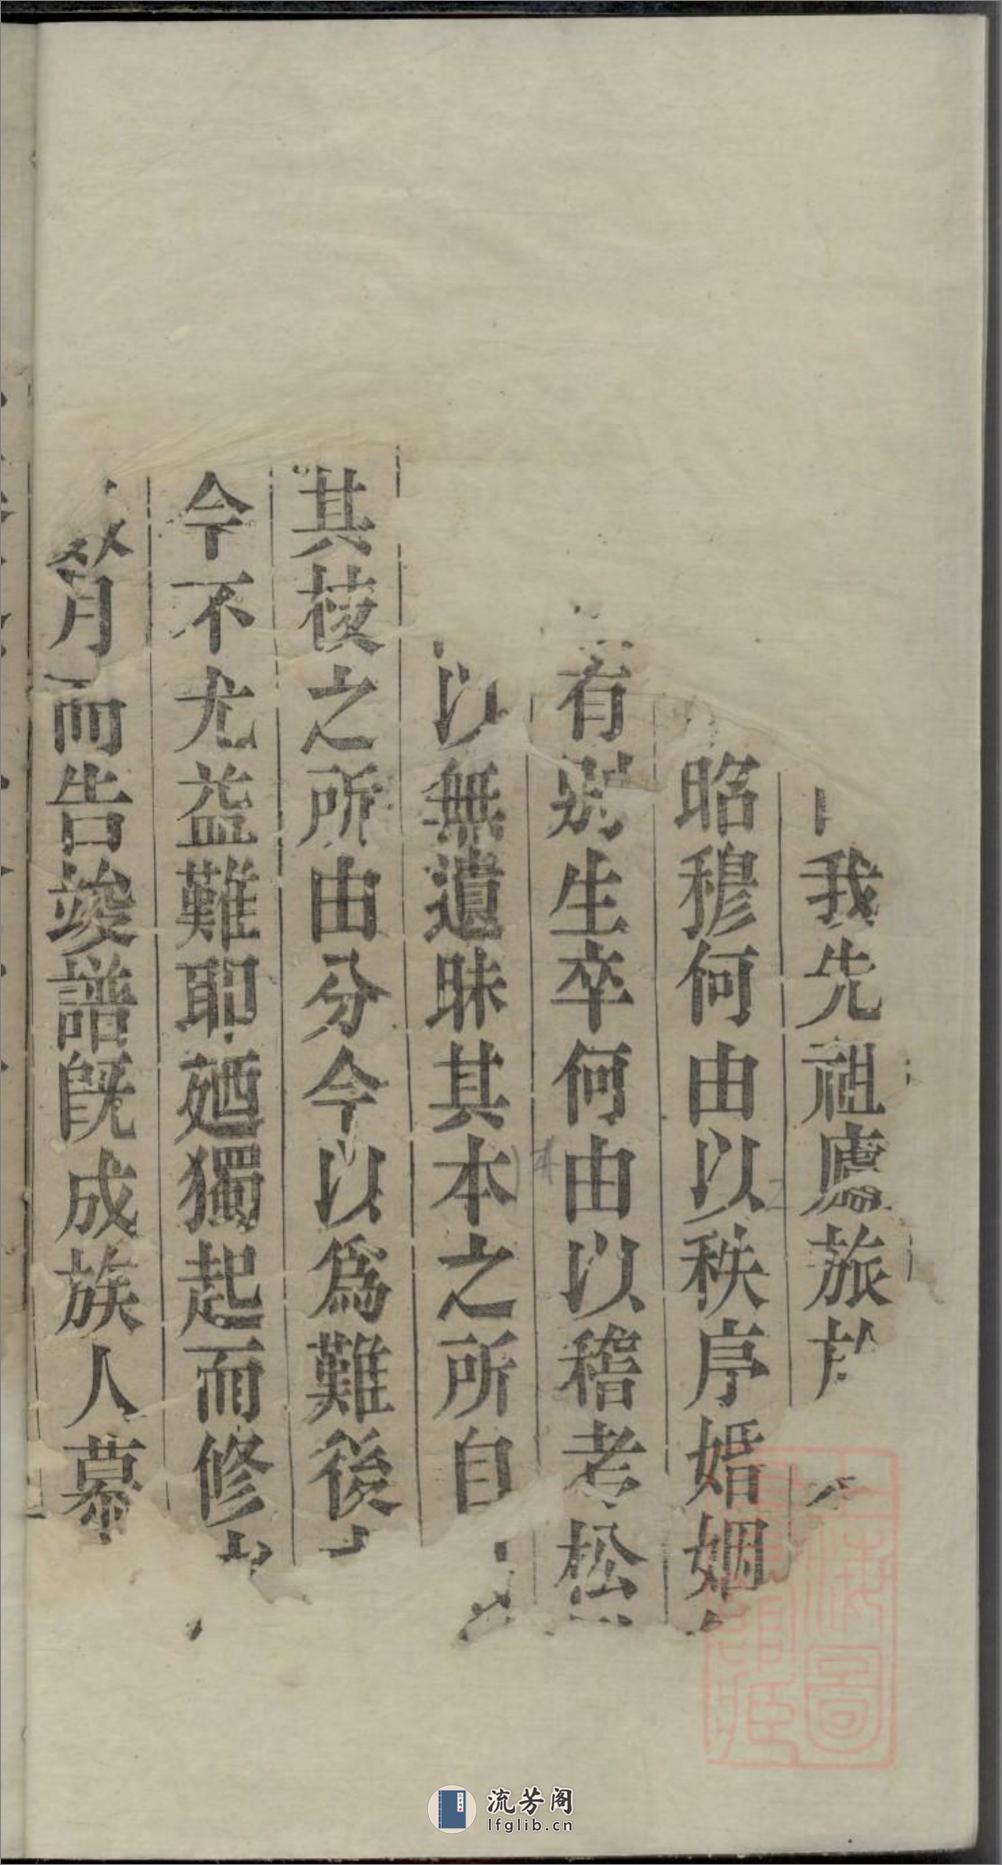 我先祖處旅於
昭穆何由以秩序婚姻
有別生卒何由以稽老松
以無遺昧其本之所自
其枝之所由分今以為難後
今不尤益難耶廼獨起而修
而告竣譜既成族人慕
上海圖書館藏
流芳阁
lfglib.cn